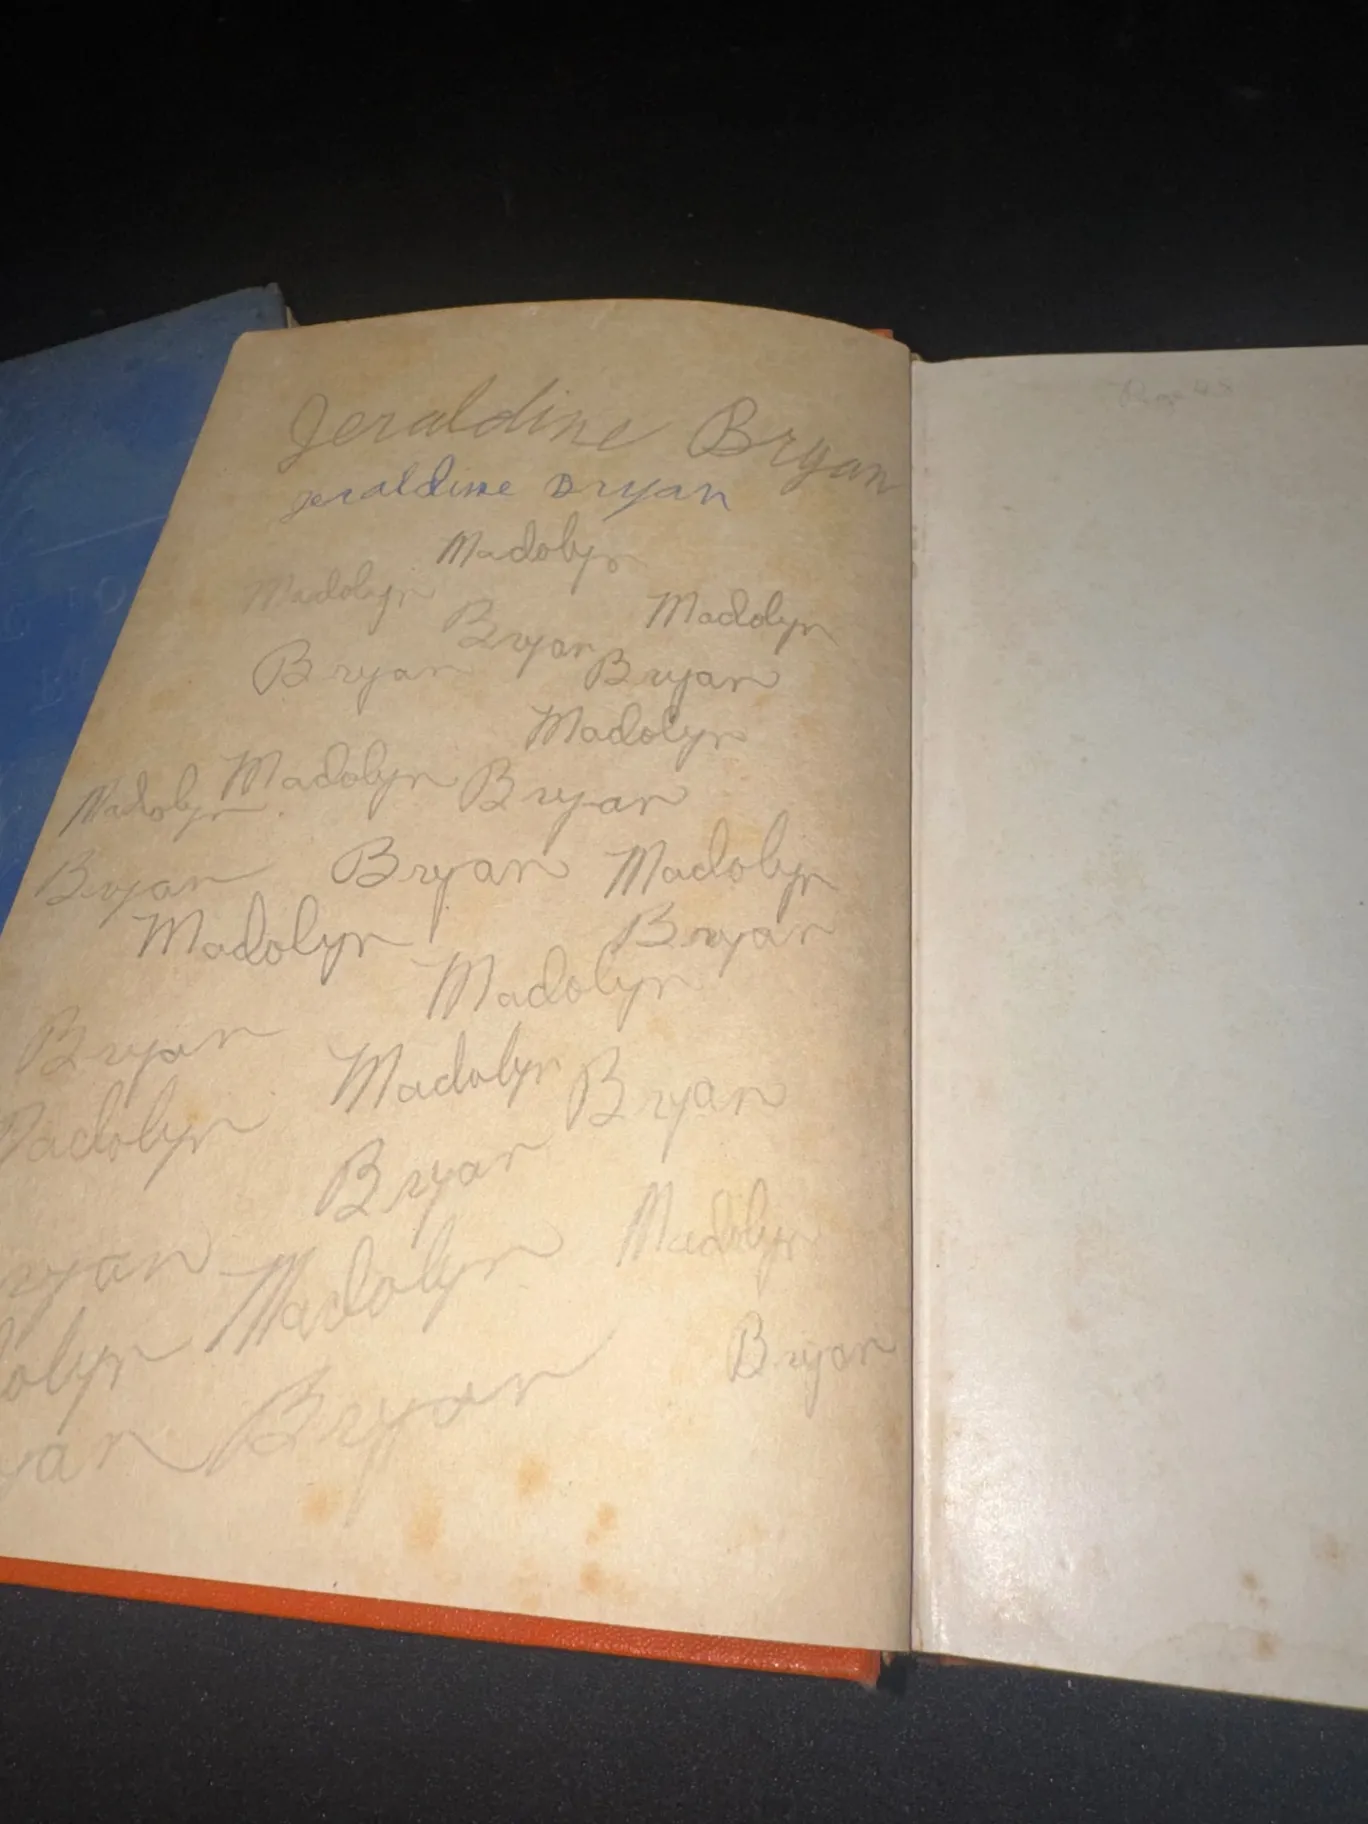 Jeraldine Bryan
Jeraldine Bryan
Madolyn
Madolyn
Madolyn
Bryan
Bryan
Bryan
Madolyn
Madolyn Madolyn Bryan
Bryan Bryan Madolyn
Madolyn Bryan
Madolyn
Bryan
Madolyn Bryan
Madolyn
Bryan
Madolyn
ryan Madolyn
olyn
Bryan
yan Bryan